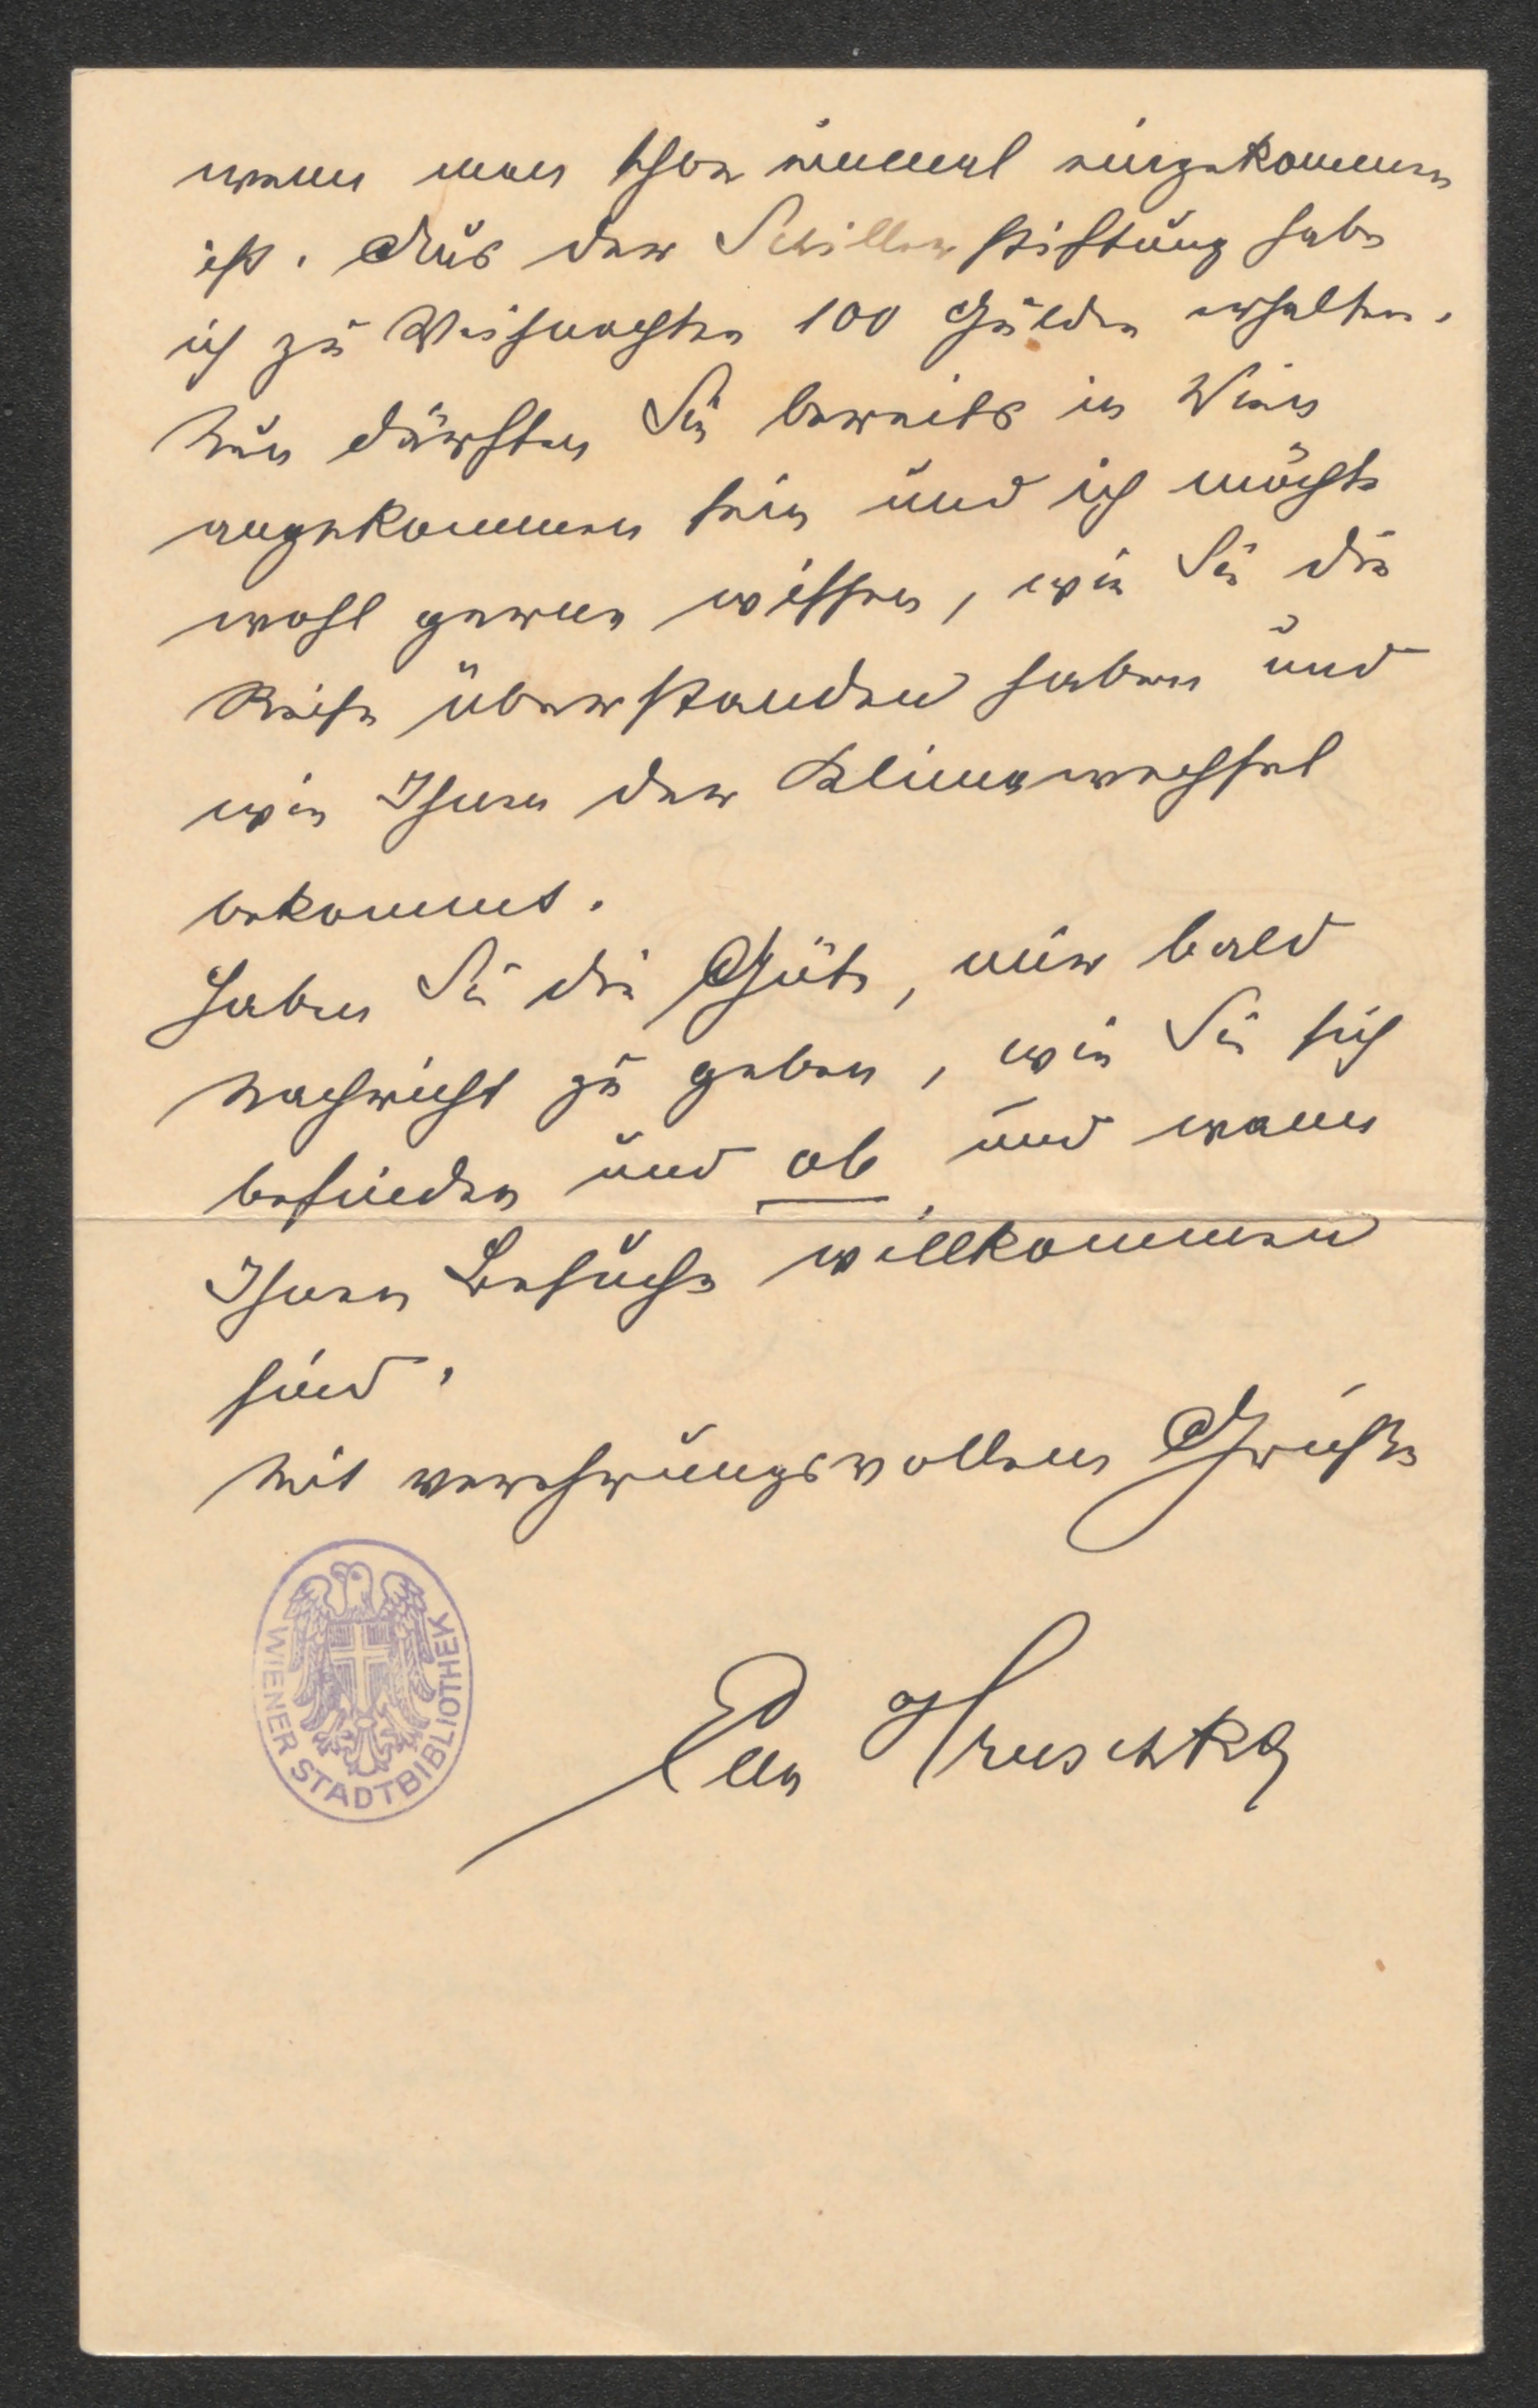 wenn man schon einmal eingekommen
ist. Aus der Schillerstiftung habe
ich zu Weihnachten 100 Gulden erhalten.
Nun dürften Sie bereits in Wien
angekommen sein und ich möchte
wohl gerne wissen, wie Sie die
Reise überstanden haben und
wie Ihnen der Klimawechsel
bekommt.
Haben Sie die Güte, mir bald
Nachricht zu geben, wie Sie sich
befinden und ob und wann
Ihnen Besuche willkommen
sind.
Mit verehrungsvollem Gruße
Ella Hruschka
WIENER STADTBIBLIOTHEK